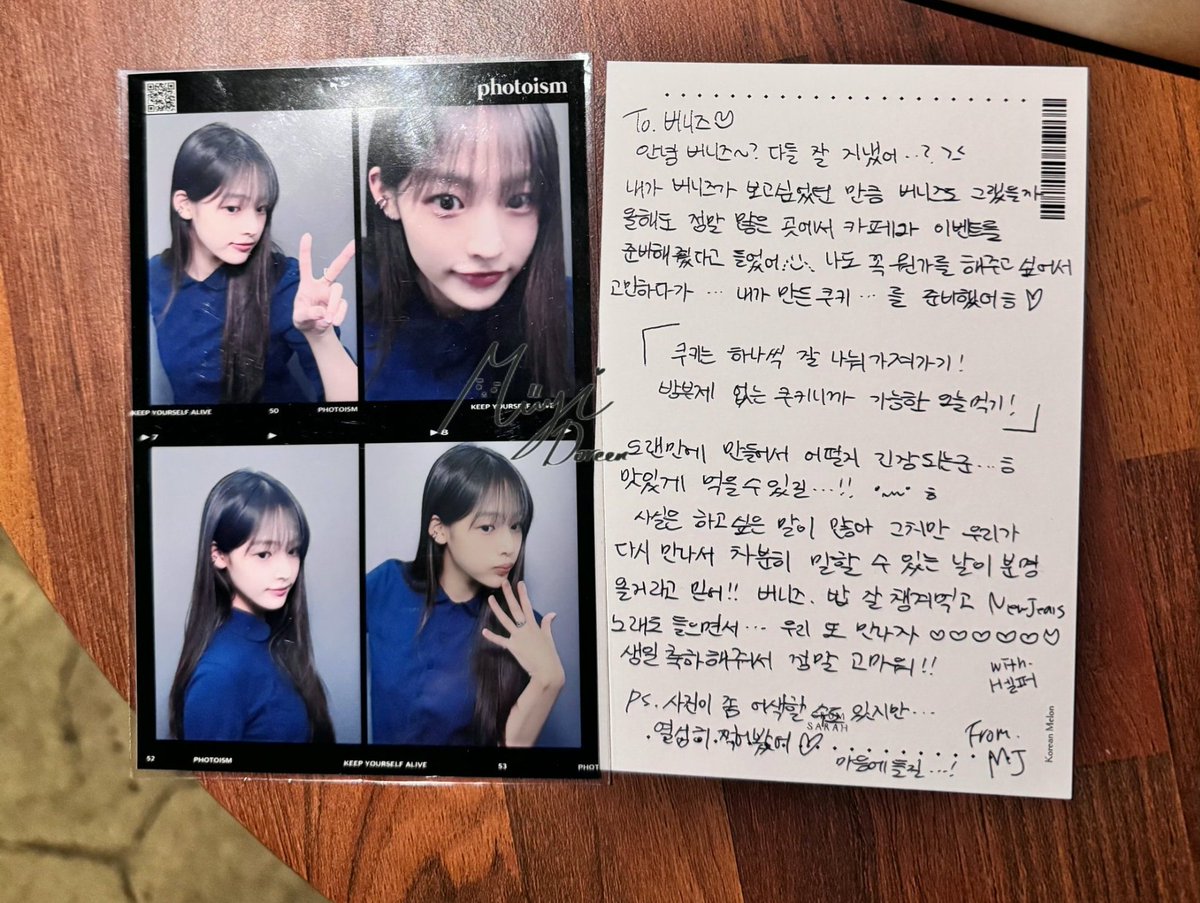 photoism
KEEP YOURSELF ALIVE
50
PHOTOISM
KEEP YOURSELF ALIVE
▶7
▶
▶8
52
PHOTOISM
KEEP YOURSELF ALIVE
53
PHOTO
To. 버니즈♡
안녕 버니즈~? 다들 잘 지냈어...?
내가 버니즈가 보고싶었던 만큼 버니즈도 그랬을까
올해도 정말 많은 곳에서 카페과 이벤트를
준비해줬다고 들었어 나도 꼭 뭔가를 해주고 싶어서
고민하다가 ... 내가 만든 쿠키 ... 를 준비했어ㅎ ♡
「쿠키는 하나씩 잘 나눠가져가기!
방부제 없는 쿠키니까 가능한 오늘먹기!」
오랜만에 만들어서 어떨지 긴장되는군...ㅎ
맛있게 먹을수있길...!! ㅎ
사실은 하고싶은 말이 많아 그치만 우리가
다시 만나서 차분히 말할 수 있는 날이 분명
올거라고 믿어!! 버니즈. 밥 잘 챙겨먹고 NewJeans
노래도 들으면서... 우리 또 만나자 ♡♡♡♡♡♡
생일 축하해줘서 정말 고마워!!
with.
H셀퍼
PS. 사진이 좀 어색할 수도 있지만...
SARAH
열심히 찍어봤어 ♡
마음에 들길...!
From.
MJ
Korean Melon